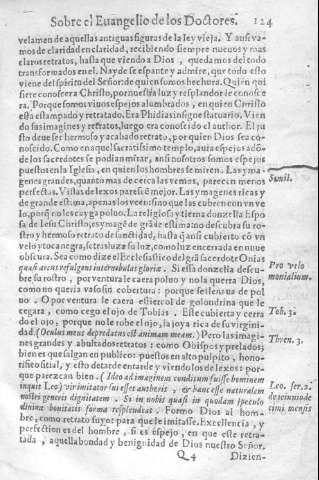 Sobre el Euangelio de los Doctores. 124
velamen de aquellas antiguas figuras de la ley vieja. Y anſi va-
mos de claridad en claridad, recibiendo ſiempre nueuos y mas
claros retratos, haſta que viendo a Dios, quedamos del todo
transformados en el. Nayde ſe eſpante y admire, que todo eſto
viene del ſpiritu del Señor: de quien ſomos hechura. Quien qui
ſiere conoſcer a Chriſto, por nueſtra luz y reſplandor le conoſce
ra. Porque ſomos viuos eſpejos alumbrados, en quien Chriſto
eſta eſtampado y retratado. Era Phidias inſigne ſtatuario. Vien
do ſus imagines y retratos, luego era conoscido el author. El ju
ſto deue ſer hermoſo y acabado retrato, por quien Dios ſea co-
noſcido. Como en aquel ſacratiſsimo templo, auia eſpejos adõ-
de los ſacerdotes ſe podian mirar, anſi noſotros ſomos eſpejos
pueſtos en la Igleſia, en quien los hombres ſe miren. Las yma-
genes grandes, quanto mas de cerca las vemos, parecen menos
perfectas. Viſtas de lexos pareſcẽ mejor. Las ymagenes ricas y
de grande eſtima, apenas los veen: ſino que las cubren con vn ve
lo, porq̃ no les caya polvo. La religioſa y tierna donzella Eſpo
ſa de Ieſu Chriſto, es ymagẽ de grãde eſtima: no deſcubra ſu ro-
ſtro y hermoſo retrato de ſanctidad, haſta q̃ anſi cubierto cõ vn
velo y toca negra, ſe trasluza ſu luz, como luz encerrada en nuue
obſcura. Sea como dize el Eccleſiaſtico del grã ſacerdote Onias
quaſi arcus refulgens inter nebulas gloriæ. Si eſſa donzella deſcu-
bre ſu roſtro, perver tura le caera poluo y no la querra Dios,
como no queria vaſo ſin cobertura: porque ſe llena de pol
uo. O por ventura le caera eſtiercol de golondrina que le
cegara, como cego el ojo de Tobias. Eſte cubierta y cerra
do el ojo, porque no le robe el ojo, la joya rica de ſu virgini-
dad. (Oculus meus depredatus eſt animam meam.) Pero las imagi-
nes grandes y abultados retratos: como Obiſpos y prelados;
bien es que ſalgan en publico: pueſtos en alto pulpito, hono-
rifico ſitial, y eſto de tarde en tarde y viendolos de lexos: por-
que parezcan bien. (Ideo ad imaginem conditum fuiſſe hominem
inquit Leo) vt imitator ſui eſſet authoris, & hanc eſſe naturalem
noſtri generis dignitatem. Si in nobis quaſi in quodam ſpeculo
diuinæ bonitatis forma reſplendeat. Formo Dios al hom-
bre, como retrato ſuyo para que le imitaſſe. Excellencia, y
perfection es del hombre, ſi es eſpejo, en que eſte retra-
tada, aquella bondad y benignidad de Dios nueſtro Señor.
Q4 Dizien-
Simil.
Pro velo
monialium.
Tob. 3.
Thren. 3.
Leo. ſer. 2.
de ieiunio de
cimi mensis